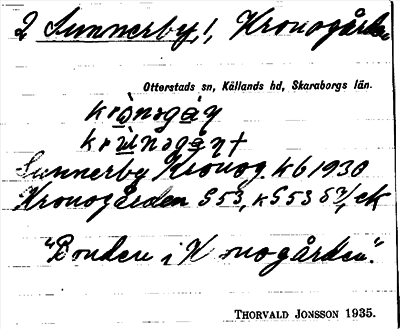 2 Sunnerby, 1, Kronogården
Otterstads sn, Kållands hd, Skaraborgs län.
Sunnerby Kronog. kb 1930
Kronogården G53, KG53
"Bonden i Kronogården".
THORVALD JONSSON 1935.